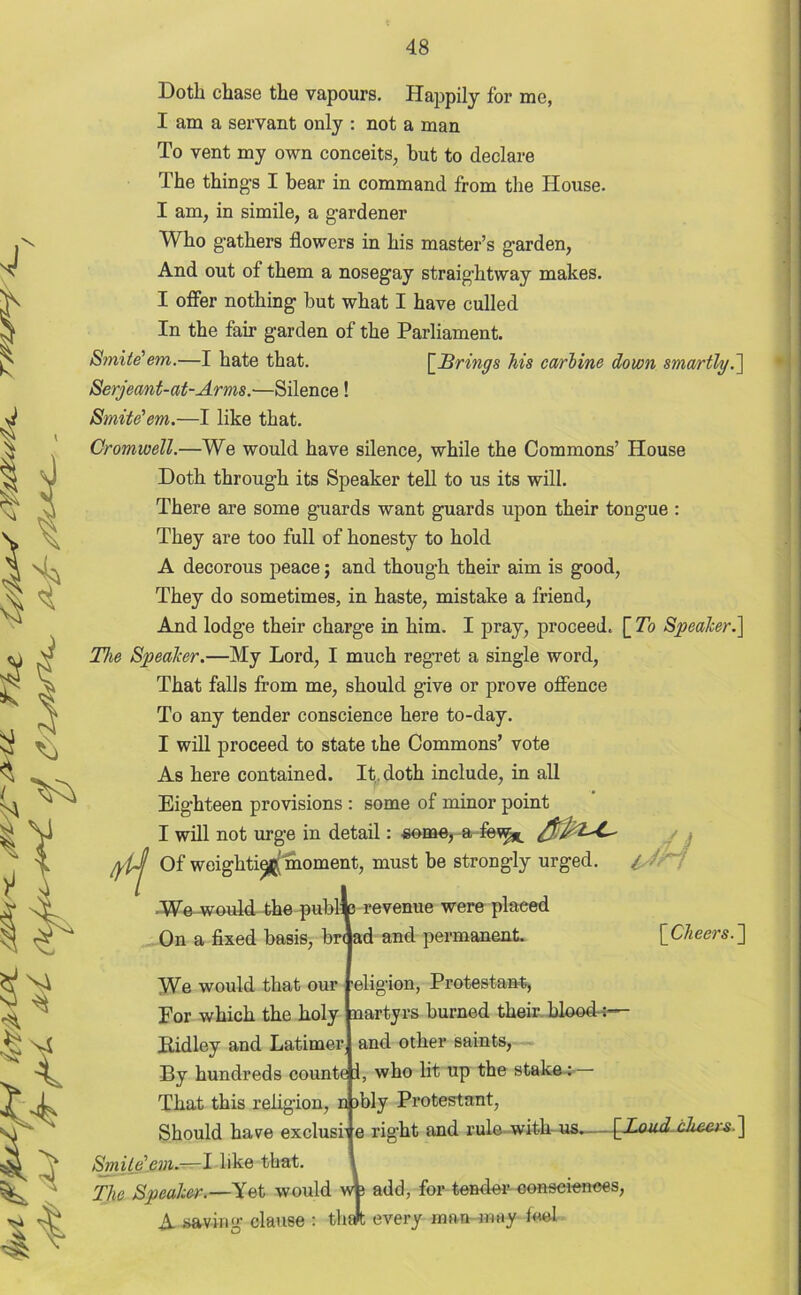 48
Doth chase the vapours. Happily for me,
I am a servant only : not a man
To vent my own conceits, but to declare
The things I bear in command from the House.
I am, in simile, a gardener
Who gathers flowers in his master's garden,
And out of them a nosegay straightway makes.
I offer nothing but what I have culled
In the fair garden of the Parliament.
Smite'em.—I hate that. [Brings his carbine down smartly.]
Serjeant-at-Arms.—Silence !
Smite'em.—I like that.
Cromwell.—We would have silence, while the Commons' House
Doth through its Speaker tell to us its will.
There are some guards want guards upon their tongue :
They are too full of honesty to hold
A decorous peace ; and though their aim is good,
They do sometimes, in haste, mistake a friend,
And lodge their charge in him. I pray, proceed. [To Speaker.]
The Speaker.—My Lord, I much regret a single word,
That falls from me, should give or prove offence
To any tender conscience here to-day.
I will proceed to state the Commons' vote
As here contained. It doth include, in all
Eighteen provisions : some of minor point
I will not urge in detail : some, a few,
Of weighti moment, must be strongly urged.
We would the public revenue were placed
On a fixed basis, broad and permanent. [Cheers.]
We would that our religion, Protestant,
For which the holy martyrs burned their blood :—
Ridley and Latimer, and other saints,
By hundreds counted, who lit up the stake :—
That this religion, nobly Protestant,
Should have exclusive right and rule with us. [Loud cheers.]
Smite'em.—I like that.
The Speaker.—Yet would we add, for tender consciences,
A saving clause : that every man may feel